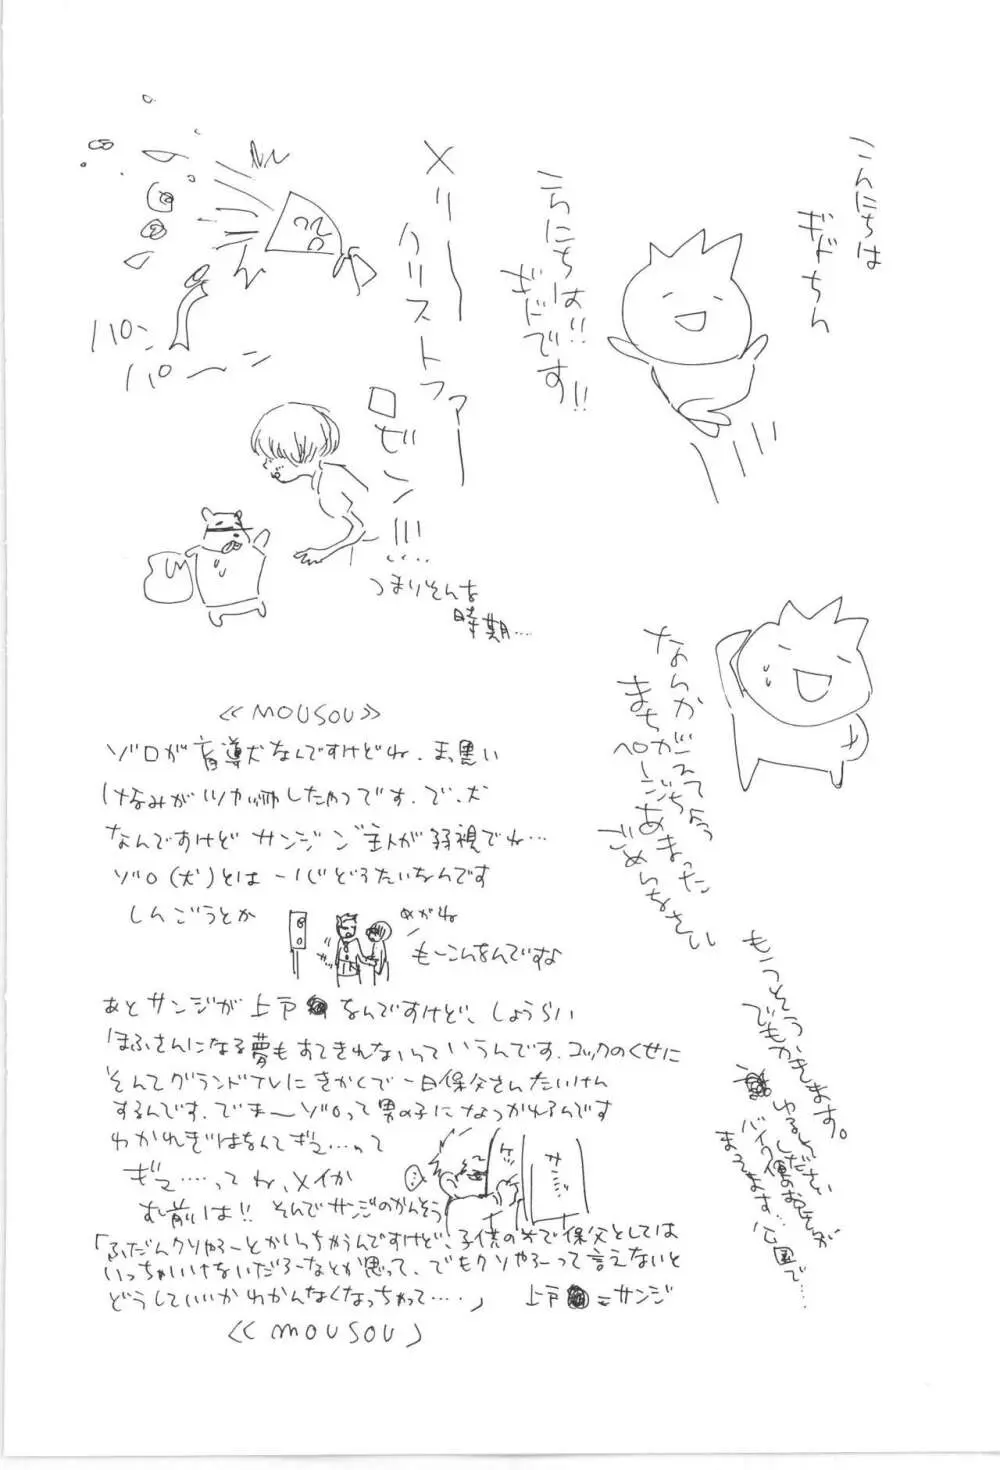 こんにちは
ギドちん
こんにちは!!
ギドです!!
メリー
クリストファー
ロビン!!!…
つまりそんな
時期…
パン
パーン
なんか
まちがえて
ページ
あまった
ごめんなさい
もうそう
でもかきます。
ゆるして下さい
バイク便のお兄さんが
まってます…公園で…
≪MOUSOU≫
ゾロが盲導犬なんですけどね、真黒い
けなみがツヤッツヤしたやつです。で、犬
なんですけど サンジ ご主人が弱視でね…
ゾロ(犬)とは 一心どうたいなんです
しんごうとか
めがね
もーこんなんですな
あとサンジが上戸 なんですけど、しょうらい
ほふさんになる夢もすてきれないっていうんです。コックのくせに
そんでグランドアレにきかくで一日保父さんたいけん
するんです。でまーゾロって男の子になつかれるんです
わかれぎはなんてギュ…って
ギュ……ってね、メイか
お前は!! そんでサンジのかんそう
サンジ
「ふだんクソやろーとかいっちゃうんですけど、子供の前で保父としては
いっちゃいけないだろーなとか思って、でもクソやろーって言えないと
どうしていいかわかんなくなっちゃって……」 上戸 =サンジ
≪MOUSOU》